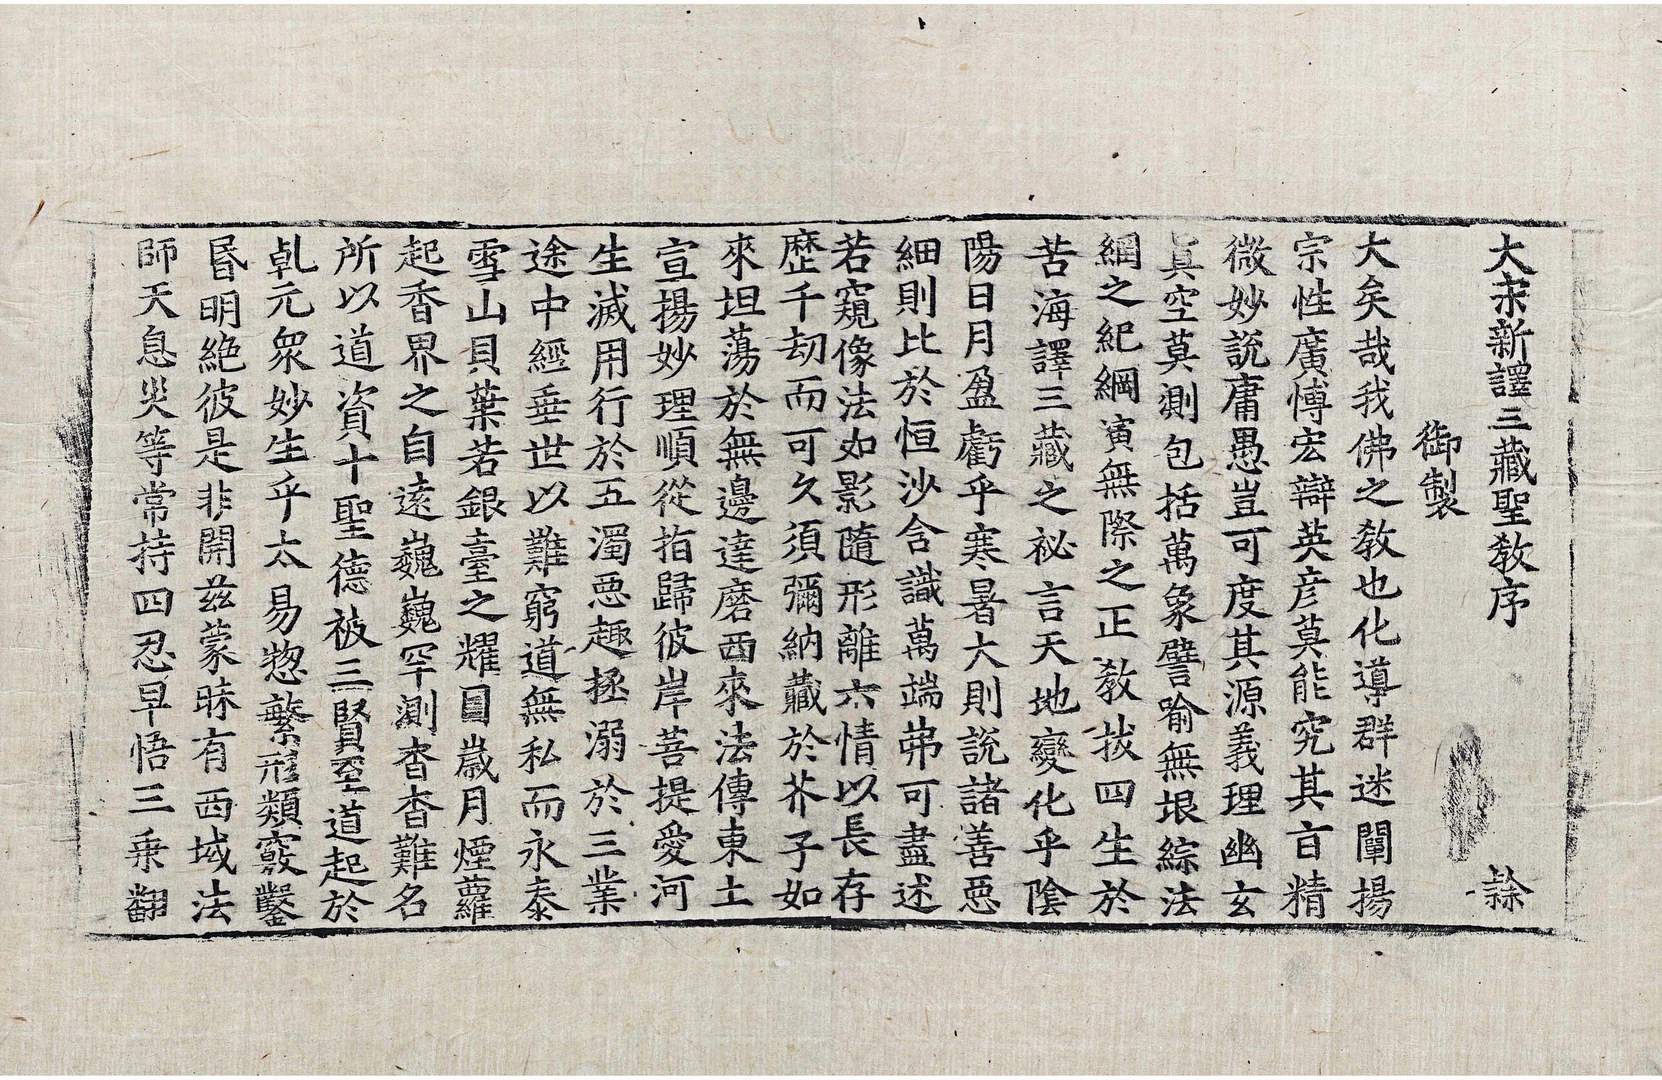 大宋新譯三藏聖敎序
御製
大矣哉我佛之敎也化導群迷闡揚
宗性廣愽宏辯英彦莫能究其㫖精
微妙說庸愚豈可度其源義理幽玄
眞空莫測包括萬象譬喻無垠綜法
綱之紀綱演無際之正敎拔四生於
苦海譯三藏之祕言天地變化乎陰
陽日月盈虧乎寒暑大則說諸善惡
細則比於恒沙含識萬端弗可盡述
若窺像法如影隨形離六情以長存
歷千劫而可久須彌納藏於芥子如
來坦蕩於無邊達磨西來法傳東土
宣揚妙理順從指歸彼岸菩提愛河
生滅用行於五濁惡趣拯溺於三業
途中經垂世以難窮道無私而永泰
雪山貝葉若銀臺之耀目歲月煙蘿
起香界之自遠巍巍罕測杳杳難名
所以道資十聖德被三賢至道起於
乹元衆妙生乎太易惣繁形類竅鑿
昬明絶彼是非開兹蒙昧有西域法
師天息災等常持四忍早悟三乗翻